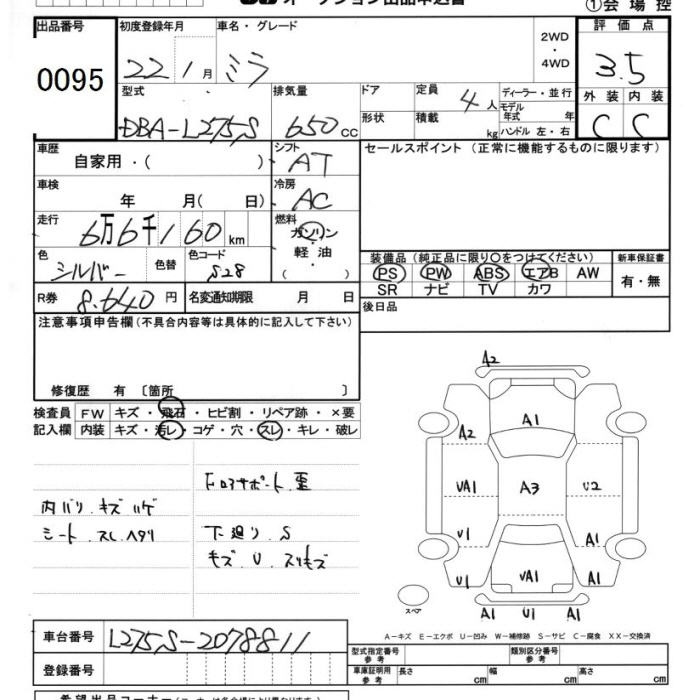 オークション出品申込書
①会 場 控
出品番号 初度登録年月 車名・グレード 2WD ・ 4WD 評 価 点
0095 22年1月 ミラ 3.5
型式 排気量 ドア 定員 4人 ディーラー・並行 外 装 内 装
モデル年式 年
DBA-L275S 650cc 形状 積載 kg ハンドル 左・右 C C
車歴 自家用・( ) シフト AT セールスポイント(正常に機能するものに限ります)
車検 年 月( 日) 冷房 AC
走行 6万6千160km 燃料 ガソリン・軽油・( )
色 シルバー 色替 色コード S28 装備品(純正品に限り○をつけてください) 新車保証書
PS PW ABS エアB AW 有・無
SR ナビ TV カワ
R券 8,640円 名変通知期限 月 日 後日品
注意事項申告欄(不具合内容等は具体的に記入して下さい)
修復歴 有 〔箇所 〕
検査員 FW キズ・飛石・ヒビ割・リペア跡・×要
記入欄 内装 キズ・汚レ・コゲ・穴・スレ・キレ・破レ
A2
A1
A2
VA1 A3 U2
V1 A1
U1 VA1 A1
スペア A1 U1 A1
内バリ.キズ ハゲ
シート.スレ ヘタリ
下廻り.S
キズ.U.スリキズ
A-キズ E-エクボ U-凹み W-補修跡 S-サビ C-腐食 XX-交換済
車台番号 L275S-2078811
型式指定番号 参考 類別区分番号 参考
登録番号 車庫証明用 参考 長さ cm 幅 cm 高さ cm
希望出品コーナー